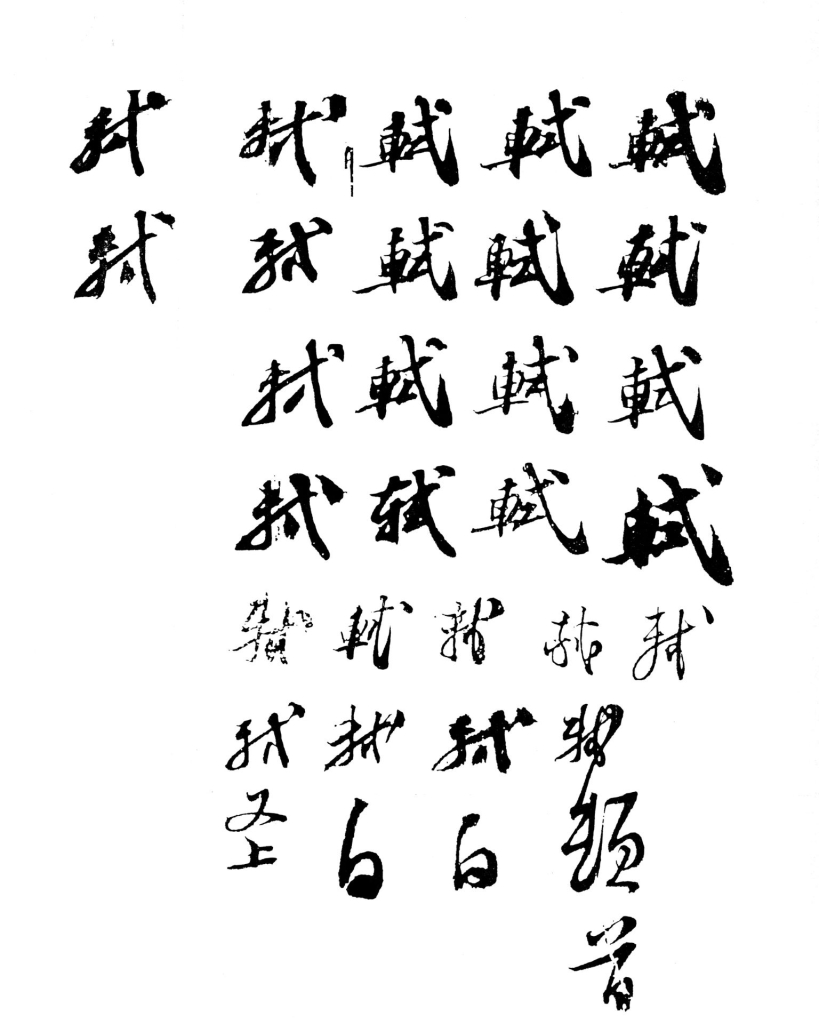 軾軾軾軾軾
軾軾軾軾軾軾頓首
軾軾軾軾軾軾白
軾軾白
軾軾軾軾軾軾又上
軾軾